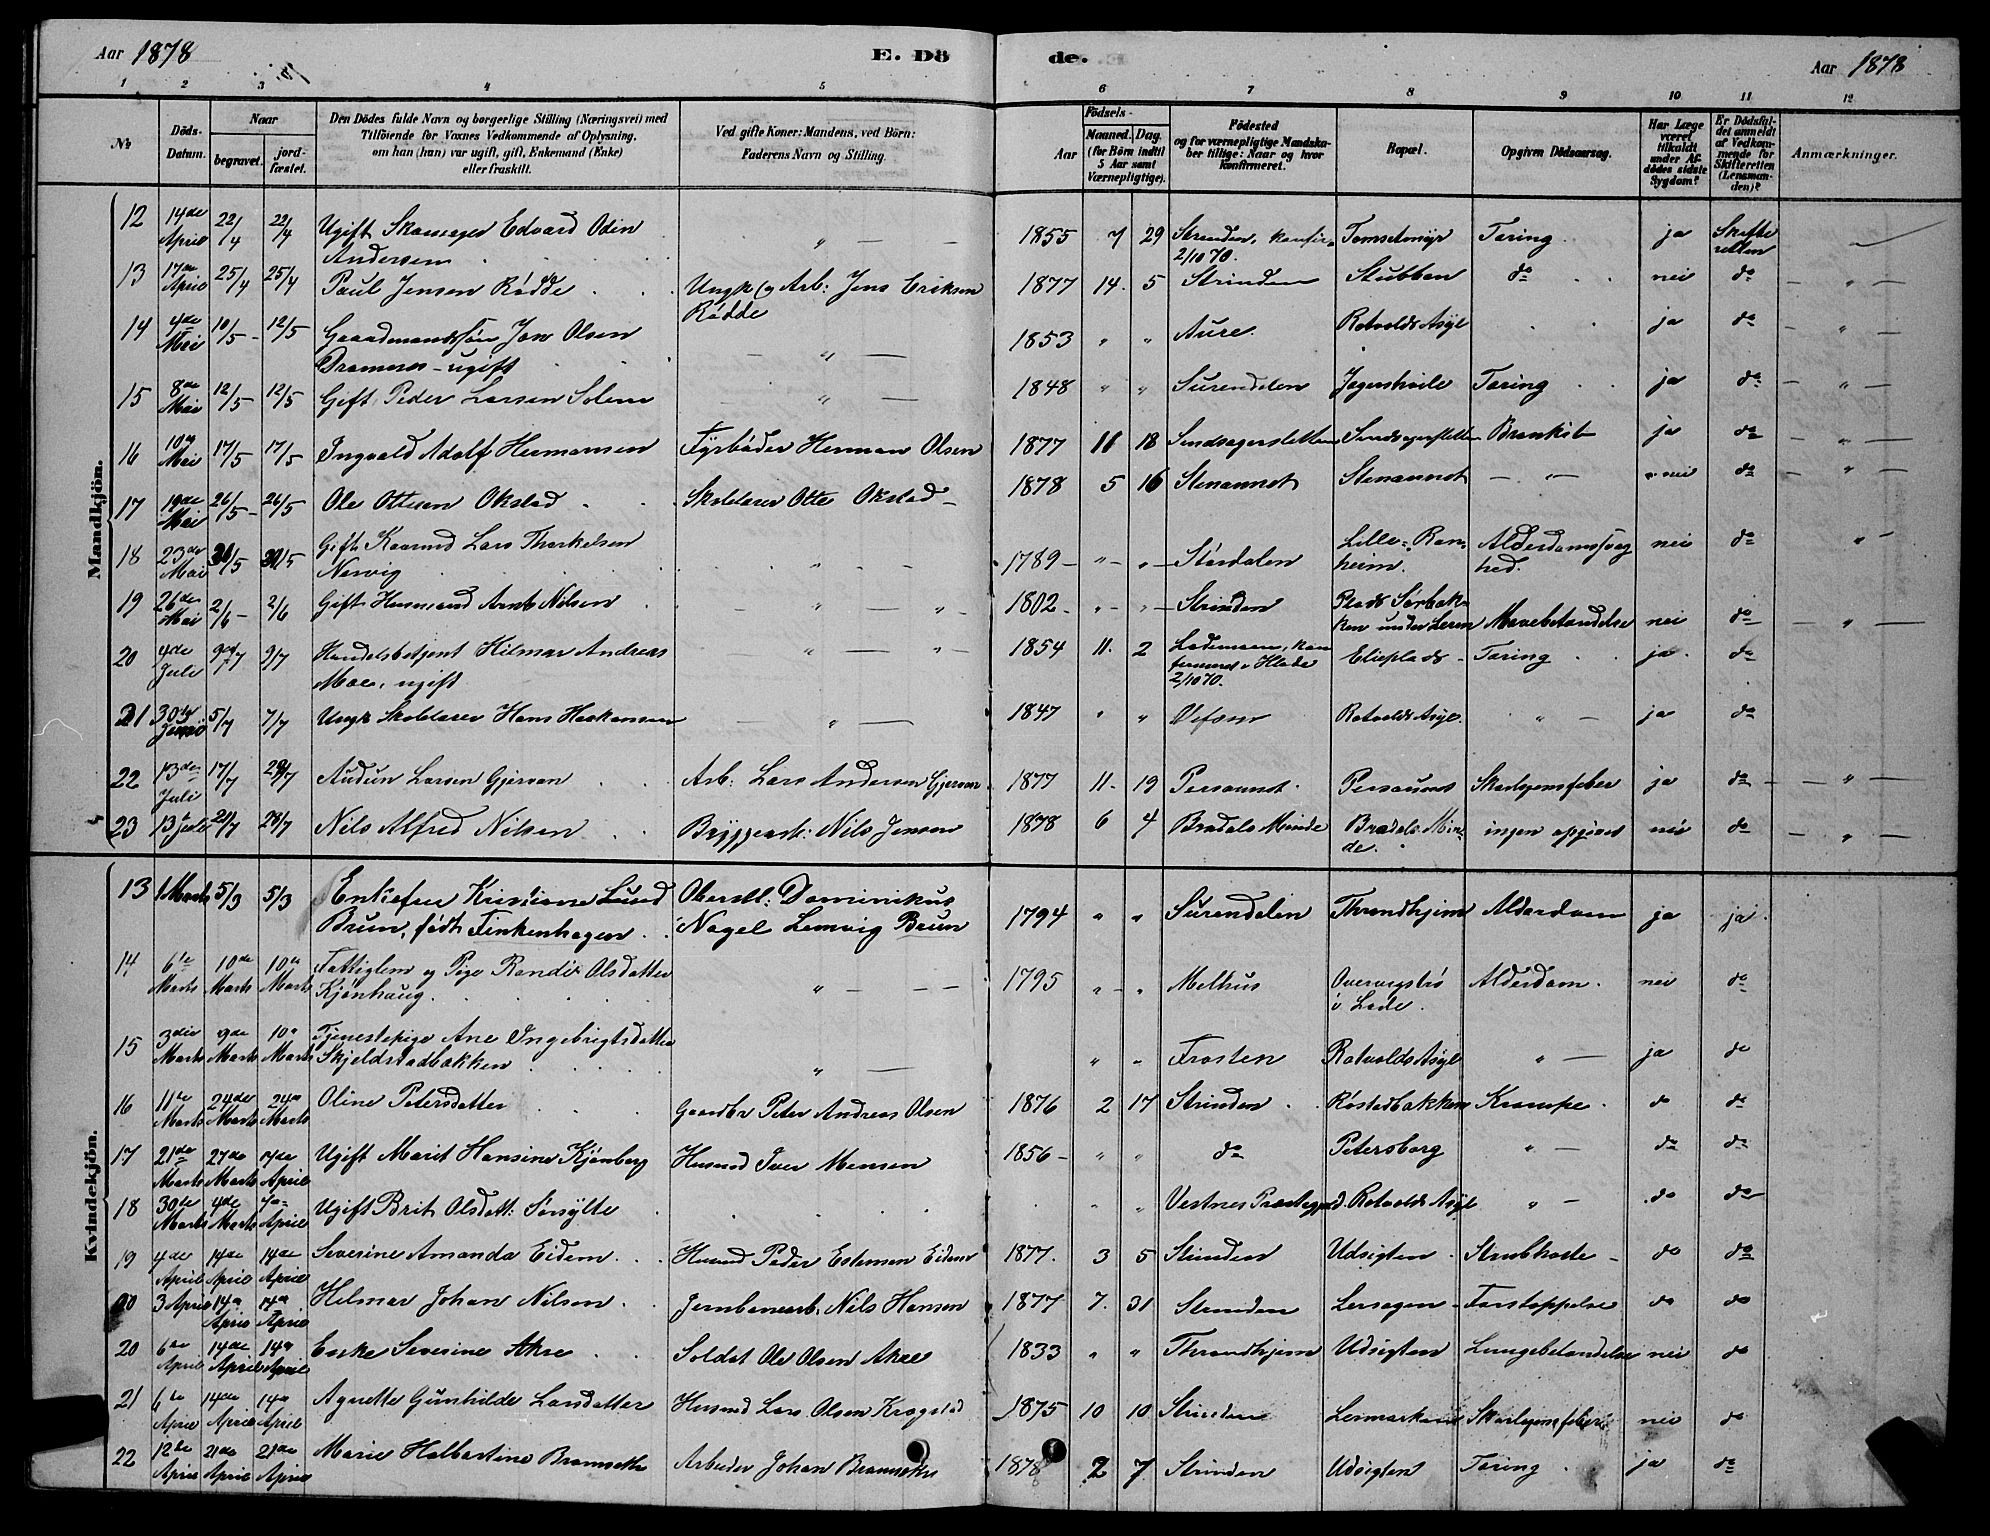 Aar 1878
E. Dö
de.
Aar 1878
1 2 3 4 5 6 7 8 9 10 11 12
No
Döds-Datum.
Naar
begravet.
jord-fæstet.
Den Dödes fulde Navn og borgerlige Stilling (Næringsvei) med
Tilföiende for Voxnes Vedkommende af Oplysning,
om han (hun) var ugift, gift, Enkemand (Enke)
eller fraskilt.
Ved gifte Koner: Mandens, ved Börn:
Faderens Navn og Stilling.
Födsels-
Aar
Maaned.
Dag.
(for Börn indtil
5 Aar samt
Værnepligtige).
Födested
og for værnepligtige Mandska-
ber tillige: Naar og hvor
konfirmeret.
Bopæl.
Opgiven Dödsaarsag.
Har Læge
været
tilkaldt
under Af-
dödes sidste
Sygdom?
Er Dödsfal-
det anmeldt
af Vedkom-
mende for
Skifteretten
(Lensman-
den)?
Anmærkninger.
Mandkjön.
12 14de April 22/4 22/4 Ugift Edvard Odin Andersen 1855 7 29 Strinden, konfir. 2/10 70. Tæring ja Skifte retten
13 17de April 25/4 25/4 Paul Jensen Rødde Ungk og Arb: Jens Eriksen Rødde 1877 14 5 Strinden Stubban do nei do
14 4de Mai 10/5 12/5 Gaardmandssøn Jon Olsen ugift 1853 " " Aure Rotvolds Asyl ja do
15 8de Mai 12/5 12/5 Gift Peder Larsen Solem 1848 " " Surendalen Jægershvile Tæring ja do
16 10de Mai 17/5 17/5 Ingvald Adolf Hermansen Fyrbøder Herman Olsen 1877 11 18 ja do
17 19de Mai 26/5 26/5 Ole Ottesen Okstad Skolelærer Otte Okstad 1878 5 16 Stenaunet Stenaunet nei do
18 23de Mai 30/5 30/5 Gift Kaarmd Lars Thorkelsen 1789 " " Størdalen Lille-Ranheim. Alderdomssvaghed. nei do
19 26de Mai 2/6 2/6 Gift Husmand Arnt Nilsen 1802 " " Strinden Plads Sørbakken under Leren Mavebetændelse nei do
20 4de Juli 9/7 9/7 Handelsbetjent Hilmar Andreas Moe, ugift 1854 11 2 Lademoen, konfirmeret i Hlade 2/10 70. Elieplads Tæring ja do
21 30de Juni 5/7 7/7 Ungk Skolelærer Hans Haakonsen 1847 " " Vefsen Rotvolds Asyl " ja do
22 13de Juli 17/7 28/7 Audun Larsen Gjervan Arb: Lars Andersen Gjervan 1877 11 19 Persaunet Persaunet Skarlagensfeber ja do
23 13 Juli 21/7 28/7 Nils Alfred Nilsen Bryggearb: Nils Jensen 1878 6 4 Bradals Minde Bradals Minde. ingen opgivet nei do
Kvindekjön.
13 1 Marts 5/3 5/3 Enkefru Kristiane Lund Brun, født Finkenhagen Oberstl: Dominikus Nagel Lemvig Brun 1794 " " Surendalen Throndhjem Alderdom ja ja
14 6te Marts 10de Marts 10de Marts Fattiglem og Pige Randi Olsdatter Kjønhaug 1795 " " Melhus i Lade. Alderdom nei do
15 3die Marts 9de Marts 10de Marts Tjenestepige Ane Ingebrigtsdatter Skjeldstadbakken " " Frosten Rotvolds Asyl " ja do
16 11te Marts 24de Marts 24de Marts Oline Petersdatter Gaardbr Peter Andreas Olsen 1876 2 17 Strinden Røstadbakken Krampe do do
17 21de Marts 27de Marts 14de April Ugift Marit Hansine Kjønberg Husmd Iver Monsen 1856 " " do Petersborg " do do
18 30te Marts 4de Marts 7de April Ugift Brit Olsdatt: Sørsylte " " Vestnes Præstegjeld Rotvolds Asyl " do do
19 4de April 14de April 14de April Severine Amanda Eidem Husmd Peder Estensen Eidem 1877 3 5 Strinden Udsigten Strubhoste do do
20 3 April 14de April 14de April Hilmar Johan Nilsen Jernbanearb. Nils Hansen 1877 7 31 Strinden Lersagen Forstoppelse do do
20 6te April 14de April 14de April Enke Severine Akse Soldat Ole Olsen Akse 1833 " " Throndhjem Udsigten Lungebetændelse nei do
21 6te April 14de April 14de April Agnette Gunhilde Larsdatter Husmd Lars Olsen Krogstad 1875 10 10 Strinden Skarlagensfeber nei do
22 12te April 21de April 21de April Marie Halbertine Bromseth Arbeider Johan Bromseth 1878 2 7 Strinden Udsigten Tæring ja do